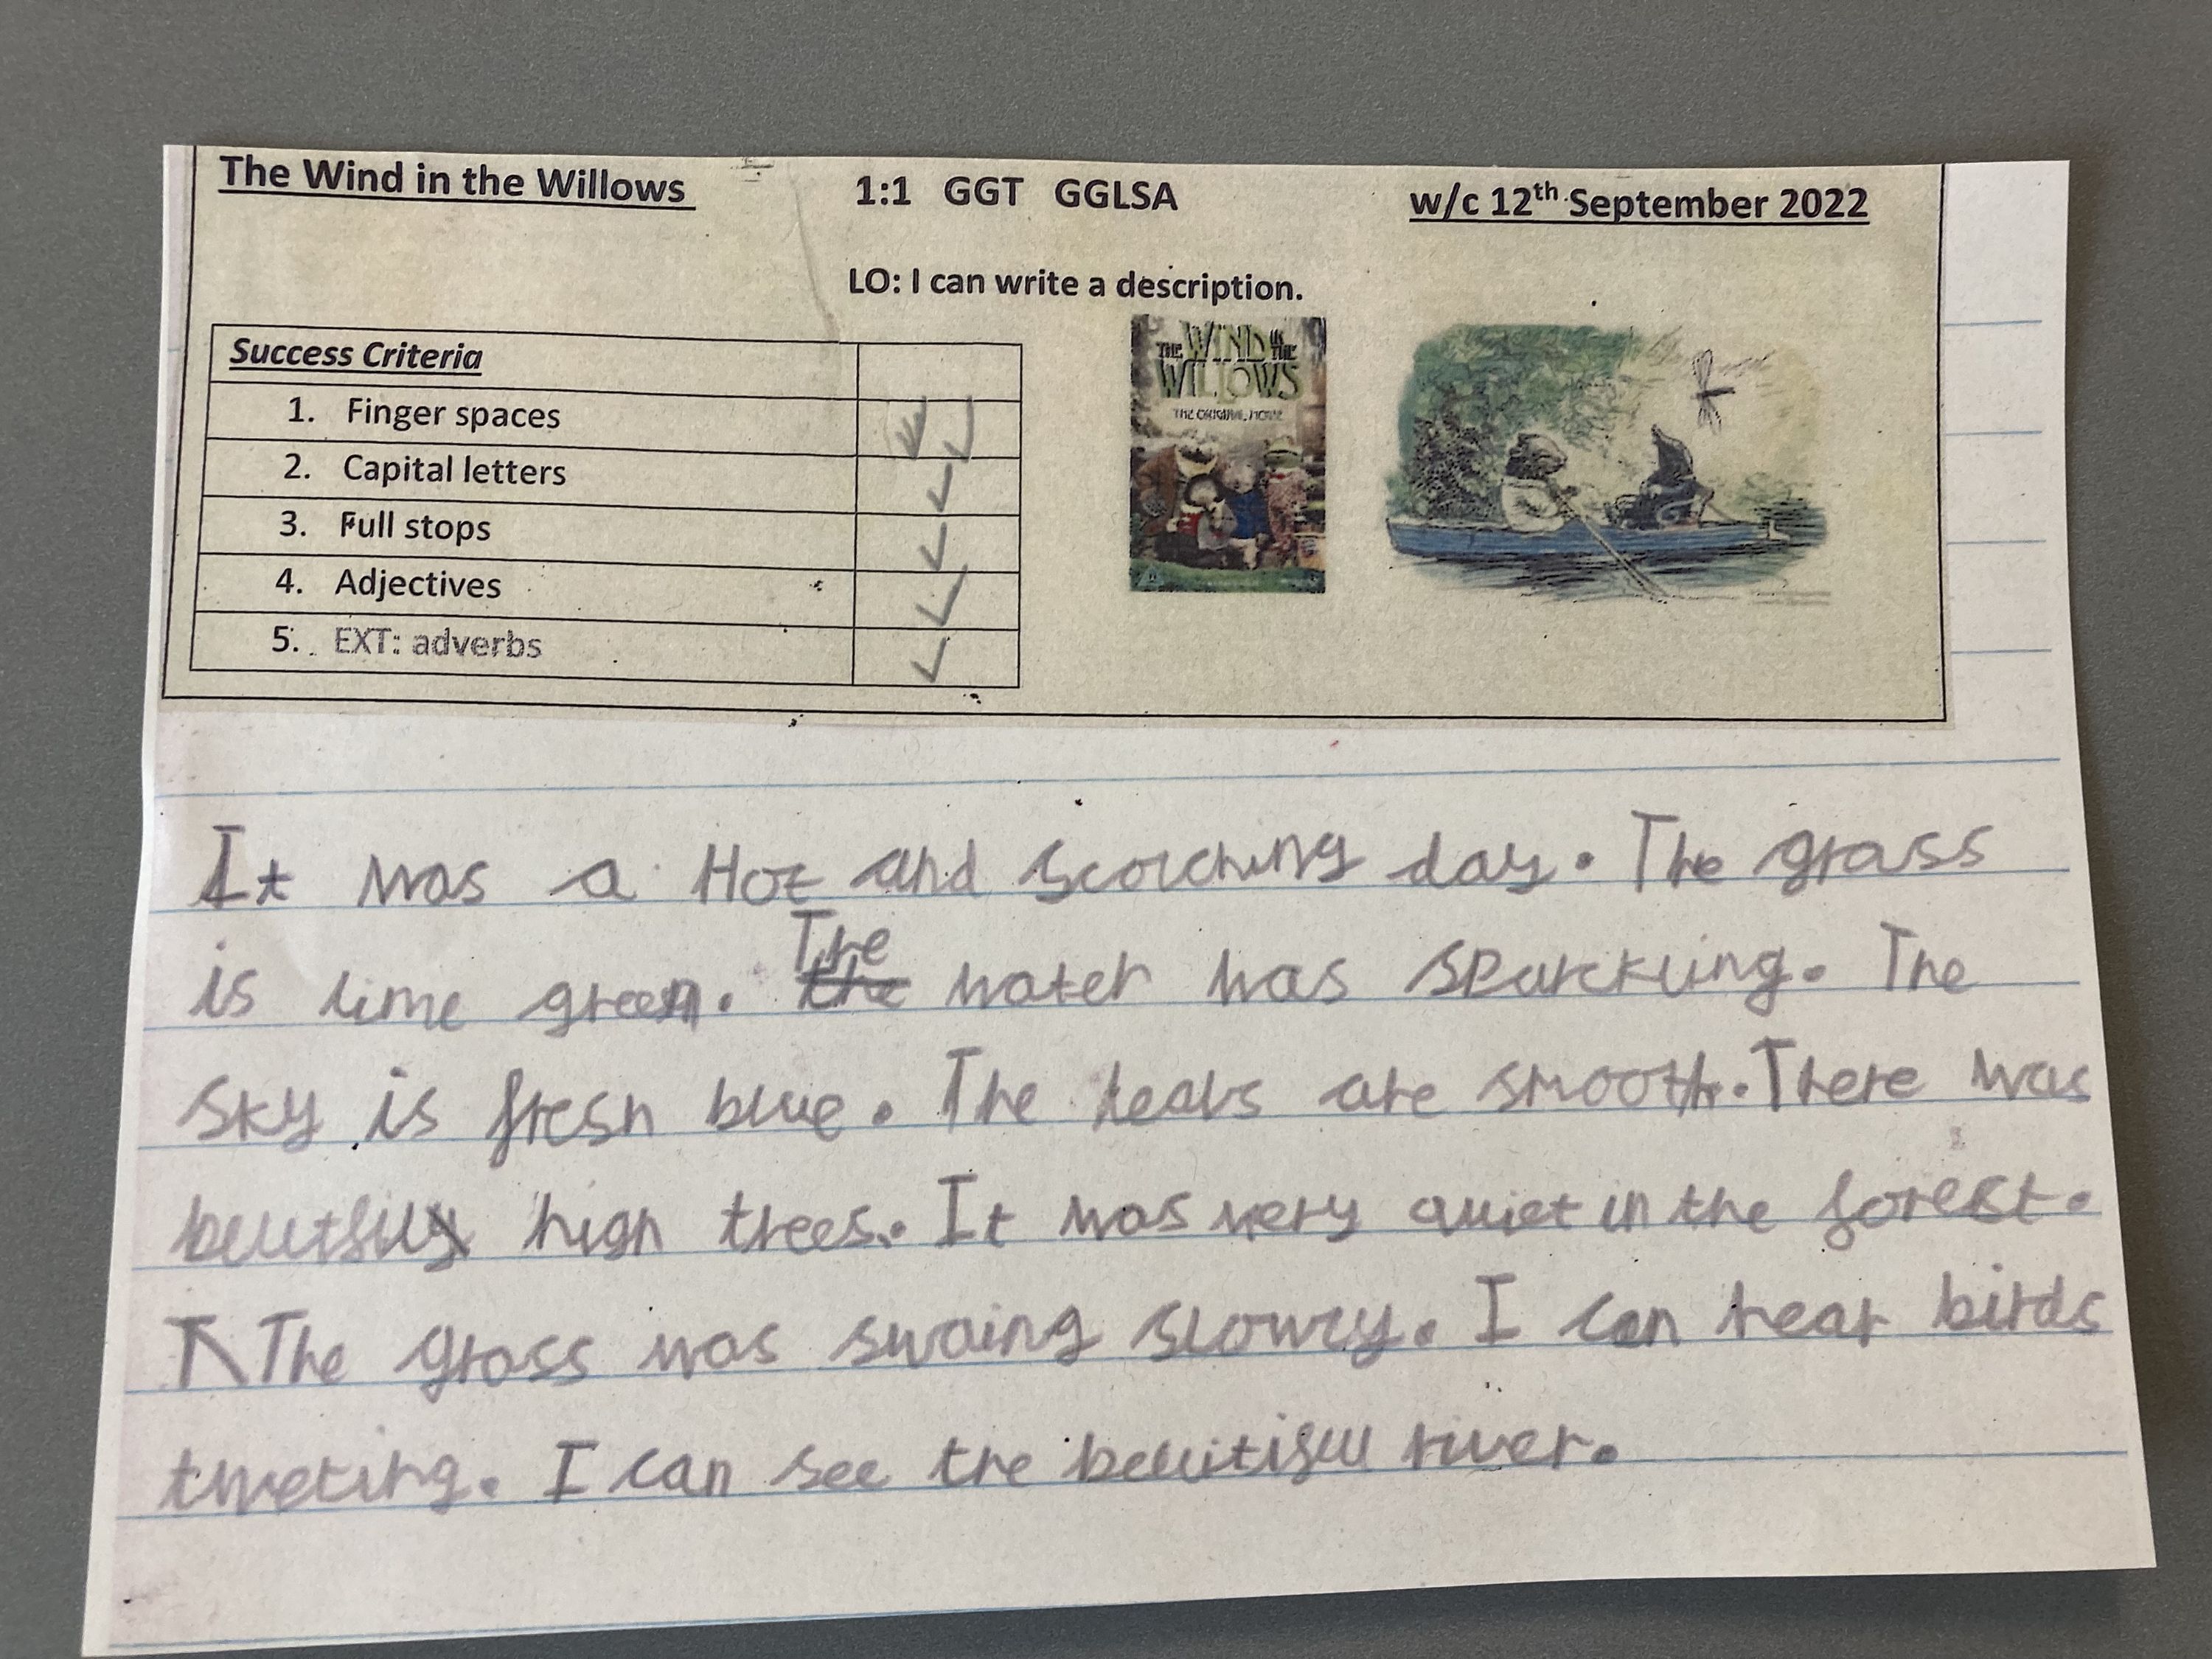 The Wind in the Willows 1:1 GGT GGLSA w/c 12th September 2022
LO: I can write a description.
Success Criteria
1. Finger spaces
2. Capital letters
3. Full stops
4. Adjectives
5. EXT: adverbs
THE WIND IN THE
WILLOWS
THE ORIGINAL MOVIE
It was a Hot and scorching day. The grass
is lime green. The the water was sparckling. The
sky is fresh blue. The leavs are smooth. There was
beutfull high trees. It was very quiet in the forest.
The grass was swaing slowly. I can hear birds
tweting. I can see the beuitifull river.